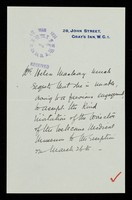 29, JOHN STREET,
GRAY'S INN, W.C.1.
Mrs Helen Mackay much
regrets that she is unable,
owing to a previous engagement,
to accept the kind
invitation of the Director
of the Wellcome Medical
Museum to the reception
on March 26th.